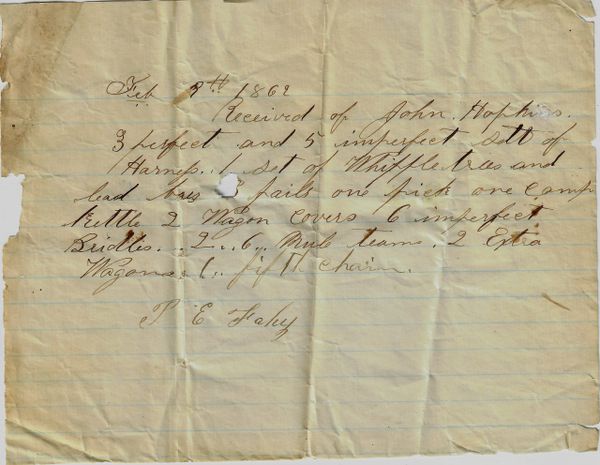 Feb 9th 1862
Received of John Hopkins.
3 perfect and 5 imperfect sett of
Harness. 1 set of Whippletrees and
lead bars pails one pick one camp
kettle 2 Wagon Covers 6 imperfect
Bridles. 2..6.. Mule teams. 2 Extra
Wagons 1.. fifth chain.
P E Fahy